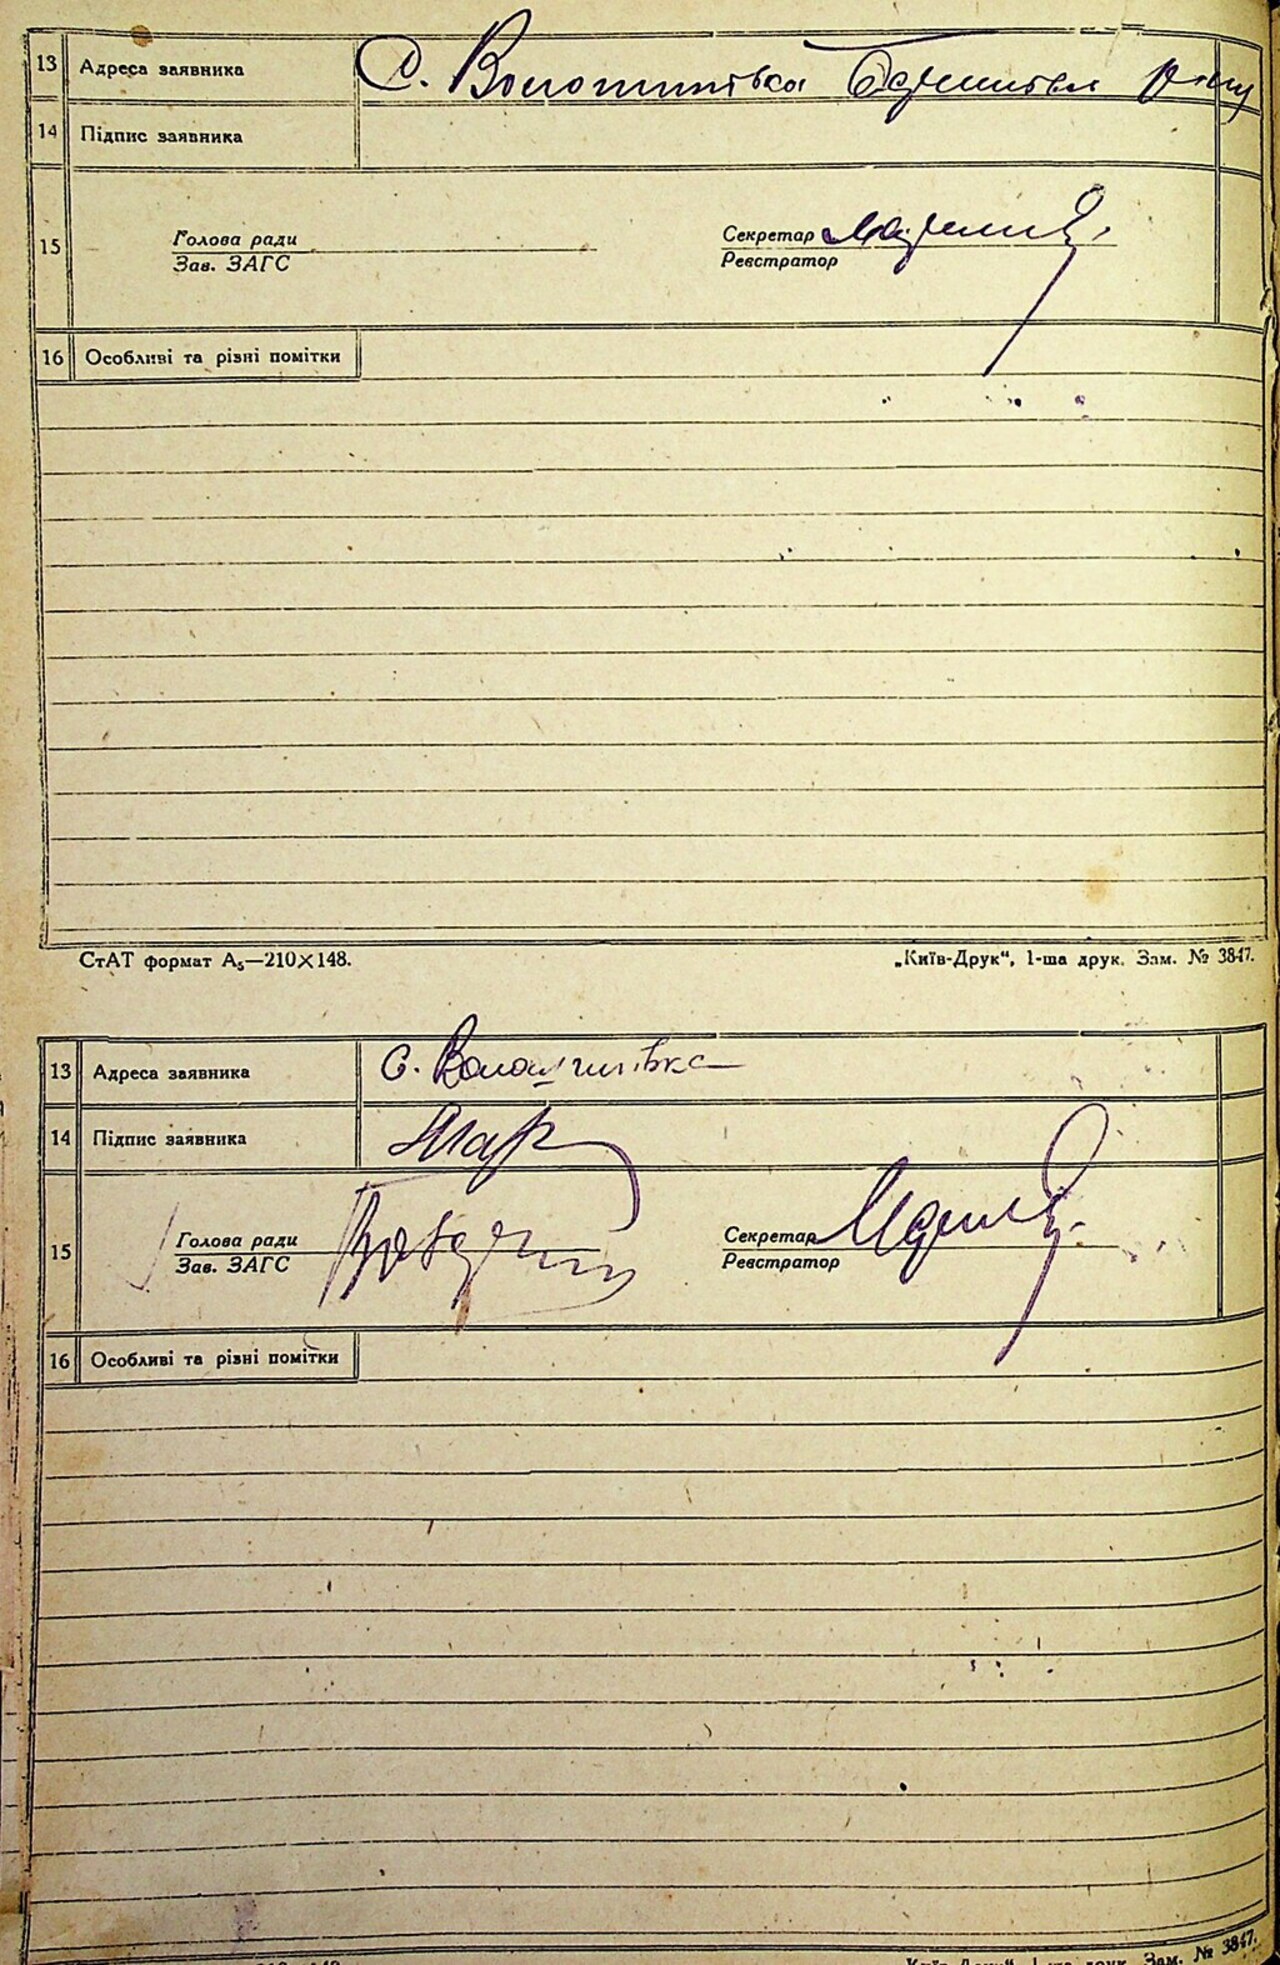 13 Адреса заявника С. Волошинівка
14 Підпис заявника
15 Голова ради Секретар
Зав. ЗАГС Реєстратор
16 Особливі та різні помітки
СтАТ формат А₅—210×148. „Київ-Друк“, 1-ша друк. Зам. № 3847.
13 Адреса заявника С. Волошинівка
14 Підпис заявника
15 Голова ради Секретар
Зав. ЗАГС Реєстратор
16 Особливі та різні помітки
1-ша друк. Зам. № 3847.